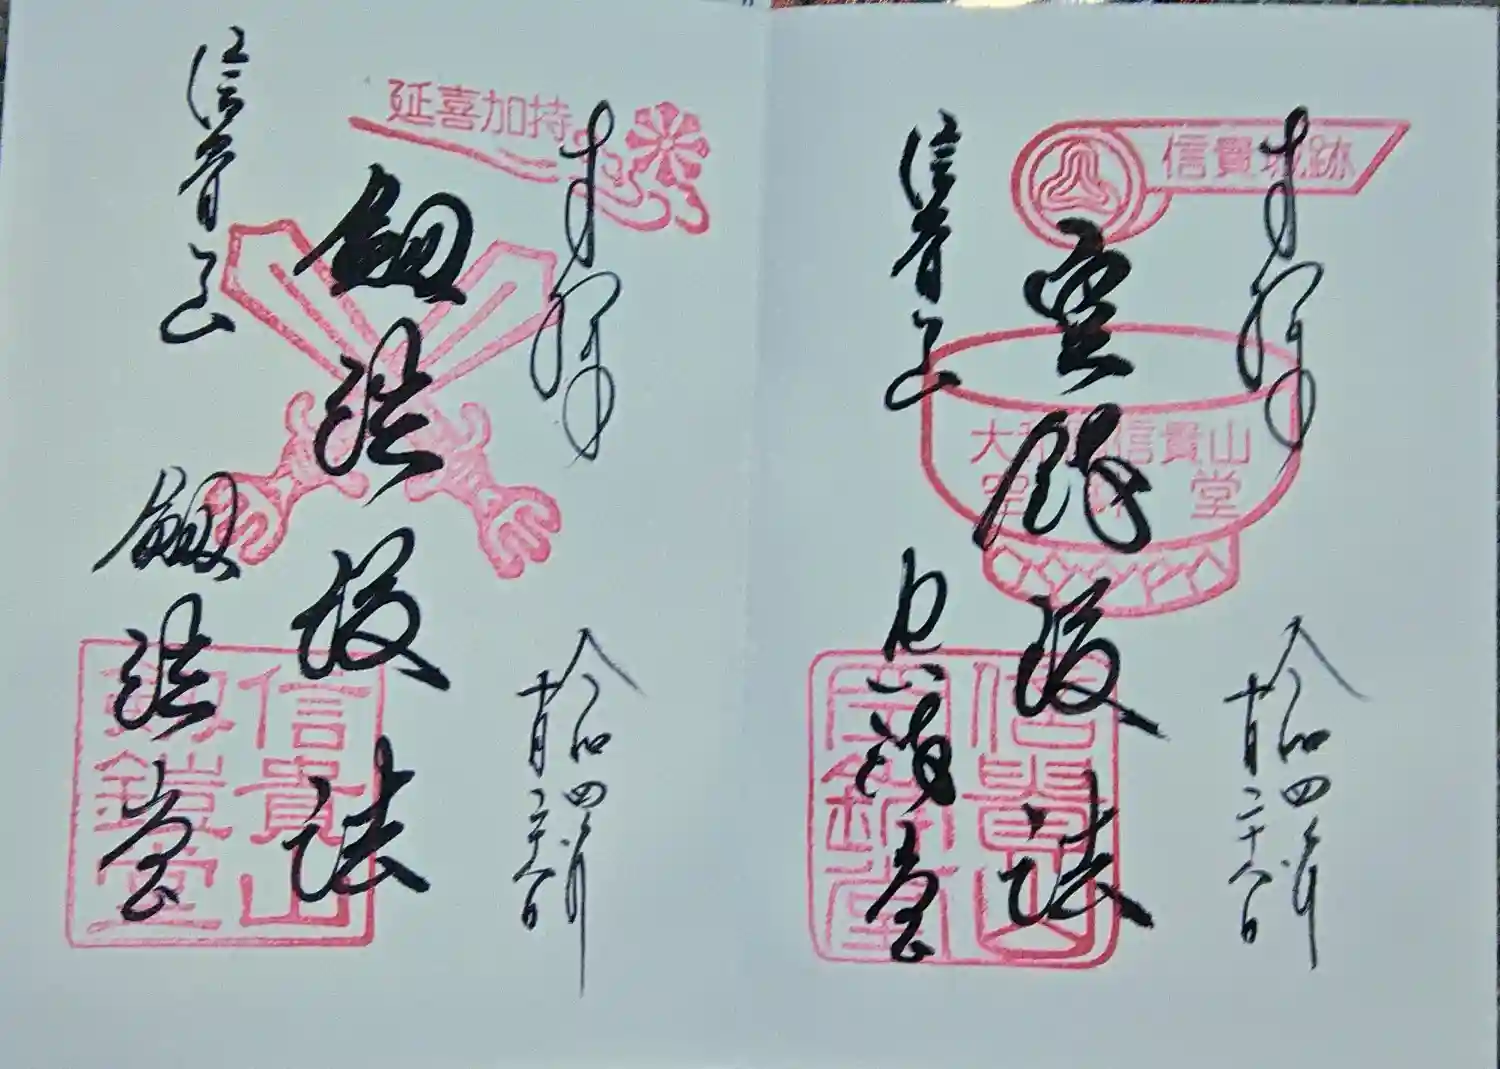 奉拝
信貴城跡
空鉢護法
大和
信貴山
堂
令和四年
十月二十六日
信貴山
信貴山
空鉢堂
奉拝
延喜加持
剱鎧護法
令和四年
十月二十六日
信貴山
剱鎧堂
信貴山
剱鎧堂